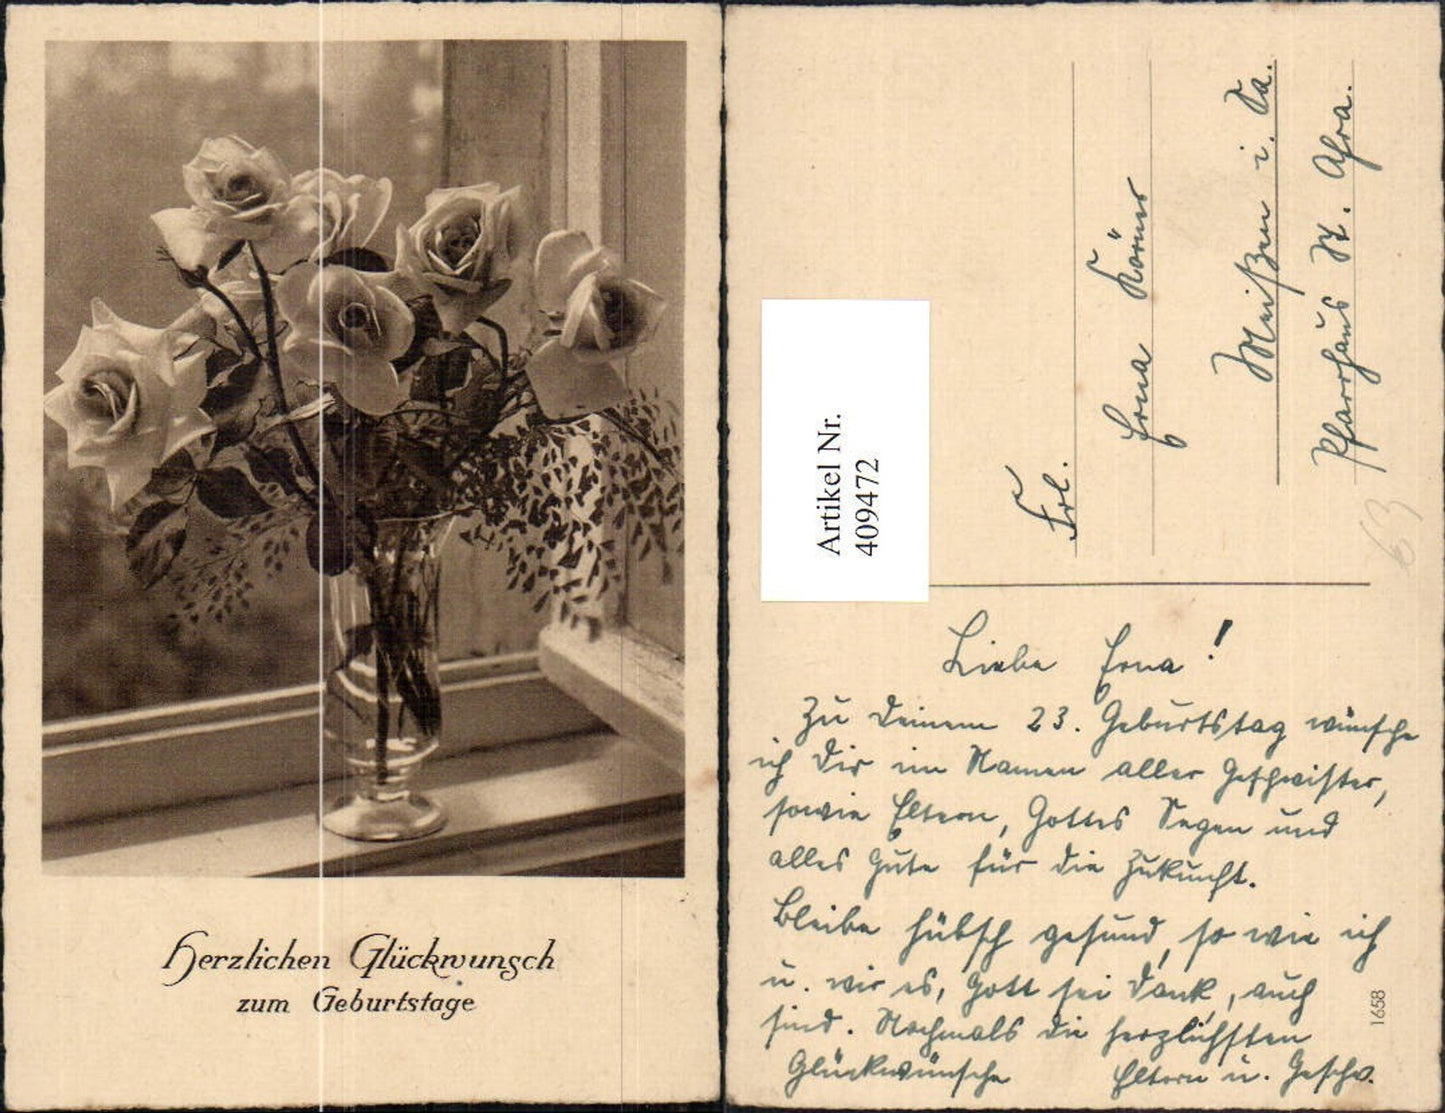 Herzlichen Glückwunsch
zum Geburtstage
Artikel Nr.
409472
Frl.
Erna Körner
Meißen i. Sa.
Pfarrhaus St. Afra.
Liebe Erna!
Zu Deinem 23. Geburtstag wünsche
ich Dir im Namen aller Geschwister,
sowie Eltern, Gottes Segen und
alles Gute für die Zukunft.
Bleibe hübsch gesund, so wie ich
u. wir es, Gott sei Dank, auch
sind. Nochmals die herzlichsten
Glückwünsche Eltern u. Geschw.
1658